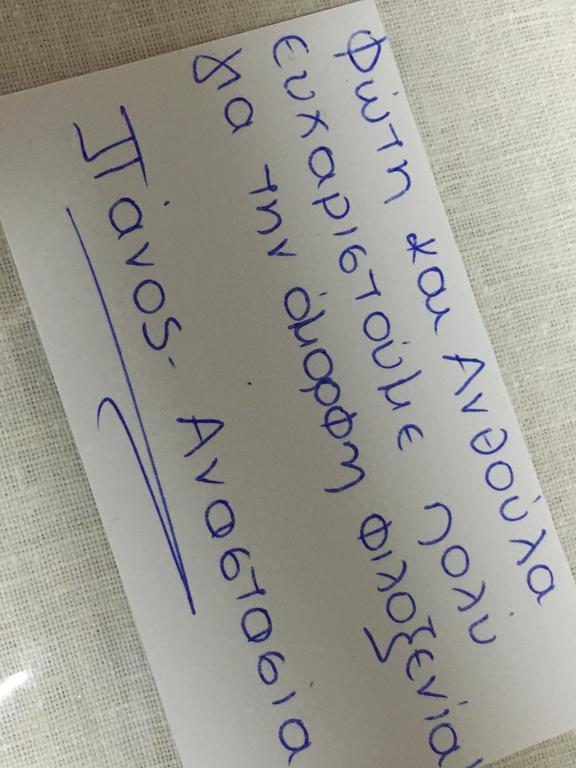 Φώτη και Ανθούλα
ευχαριστούμε πολύ
για την όμορφη φιλοξενία!
Πάνος - Αναστασία